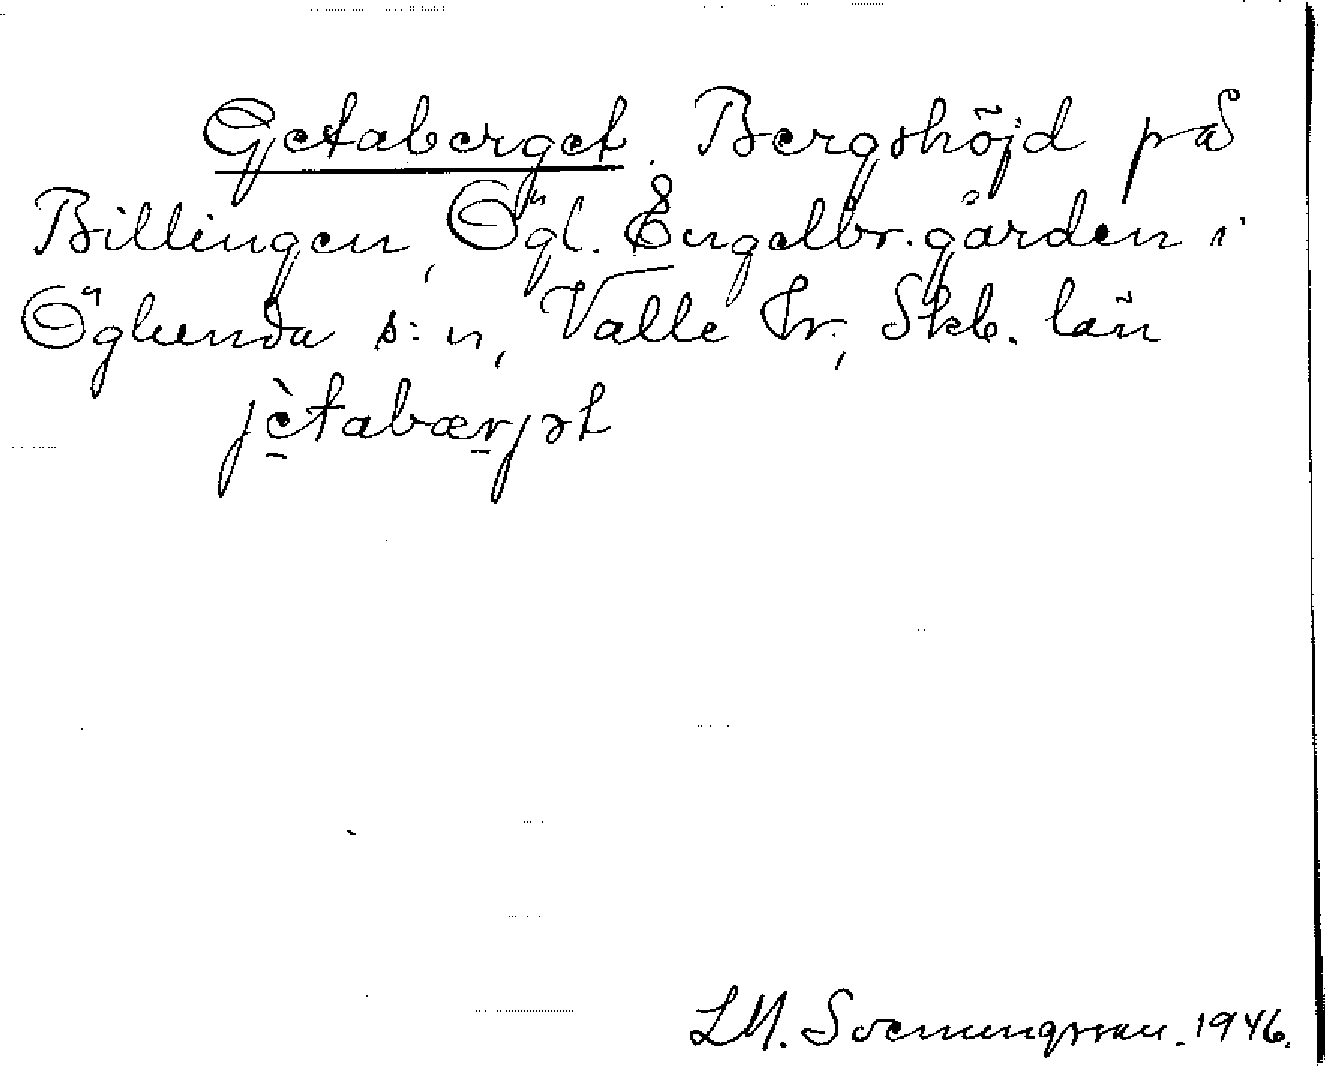 Getaberget. Bergshöjd på
Billingen, Ögl. Engelbr.gården i
Öglunda s:n, Valle hr, Skb. län
jètabærjət
LM. Svenungsson. 1946.